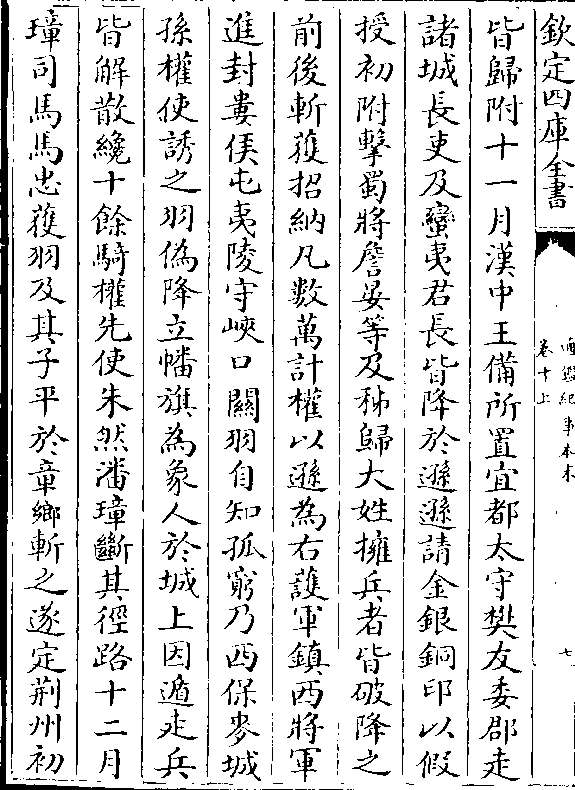 欽定四庫全書
通鑑紀事本末
卷十上
七
皆歸附十一月漢中王備所置宜都太守樊友委郡走
諸城長吏及蠻夷君長皆降於遜遜請金銀銅印以假
授初附擊蜀將詹晏等及秭歸大姓擁兵者皆破降之
前後斬獲招納凡數萬計權以遜為右護軍鎮西將軍
進封婁侯屯夷陵守峽口關羽自知孤窮乃西保麥城
孫權使誘之羽偽降立幡旗為象人於城上因遁走兵
皆解散纔十餘騎權先使朱然潘璋斷其徑路十二月
璋司馬馬忠獲羽及其子平於章鄉斬之遂定荆州初